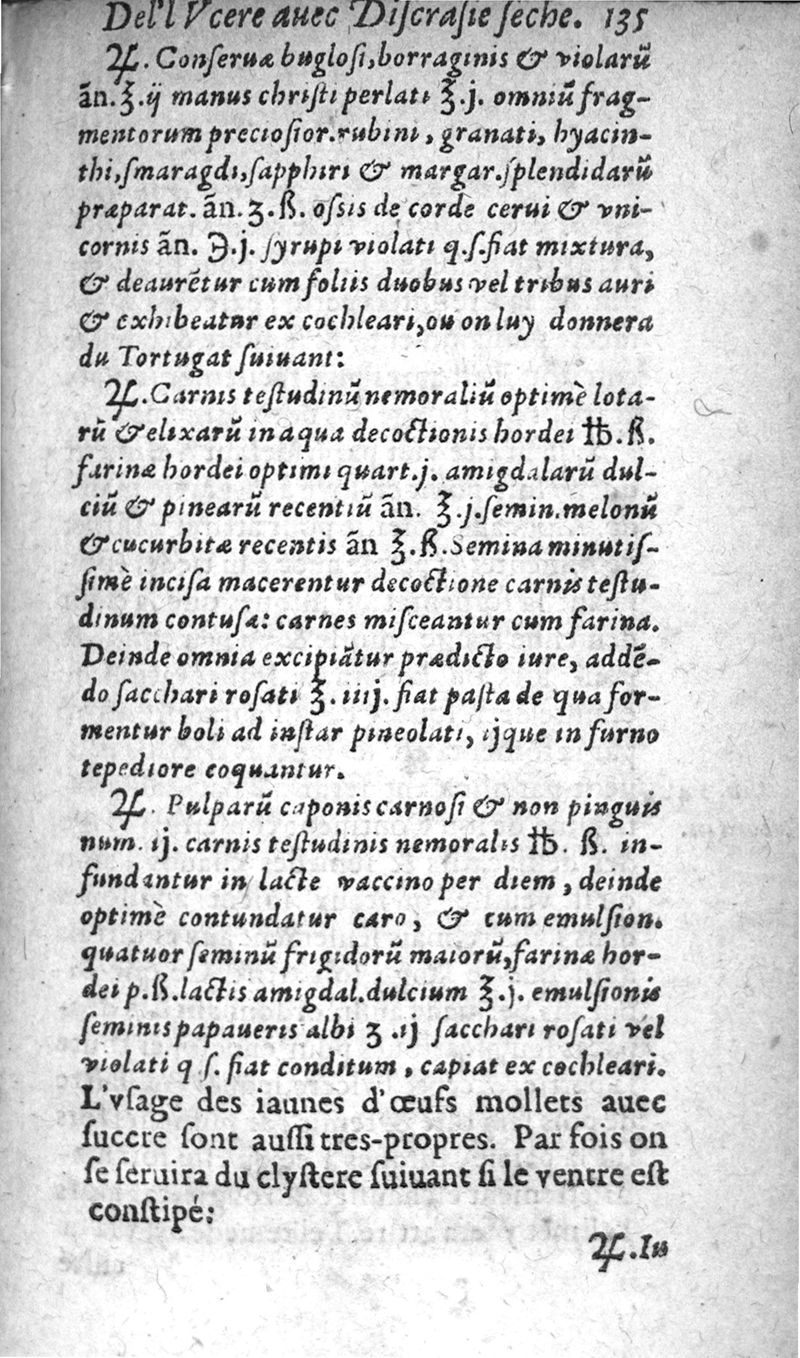 De l'Vcere auec Discrasie seche. 135
℞. Conseruæ buglosi, borraginis & violarū
ān. ℥.ij manus christi perlati ℥.j. omniū frag-
mentorum preciosior. rubini, granati, hyacin-
thi, smaragdi, sapphiri & margar. splendidarū
præparat. ān. ʒ.ß. ossis de corde cerui & vni-
cornis ān. ℈.j. syrupi violati q.s. fiat mixtura,
& deaurētur cum foliis duobus vel tribus auri
& exhibeatur ex cochleari, ou on luy donnera
du Tortugat suiuant:
℞. Carnis testudinū nemoraliū optimè lota-
rū & elixarū in aqua decoctionis hordei ℔.ß.
farinæ hordei optimi quart.j. amigdalarū dul-
ciū & pinearū recentiū ān. ℥.j. semin. melonū
& cucurbitæ recentis ān ℥.ß. Semina minutis-
simè incisa macerentur decoctione carnis testu-
dinum contusa: carnes misceantur cum farina.
Deinde omnia excipiātur prædicto iure, addē-
do sacchari rosati ℥.iiij. fiat pasta de qua for-
mentur boli ad instar pineolati, ijque in furno
tepediore coquantur.
℞. Pulparū caponis carnosi & non pinguis
num. ij. carnis testudinis nemoralis ℔. ß. in-
fundantur in lacte vaccino per diem, deinde
optimè contundatur caro, & cum emulsion.
quatuor seminū frigidorū maiorū, farinæ hor-
dei p.ß. lactis amigdal. dulcium ℥.j. emulsionis
seminis papaueris albi ʒ.ij sacchari rosati vel
violati q s. fiat conditum, capiat ex cochleari.
L'vsage des iaunes d'œufs mollets auec
succre sont aussi tres-propres. Par fois on
se seruira du clystere suiuant si le ventre est
constipé:
℞. Iu